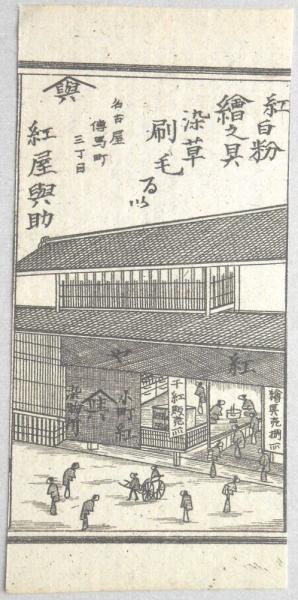 紅白粉
繪之具
染草
刷毛
るい
名古屋
傳馬町
三丁目
與
紅屋與助
紅や
繪具売捌所
千紅販売所
小町紅
與